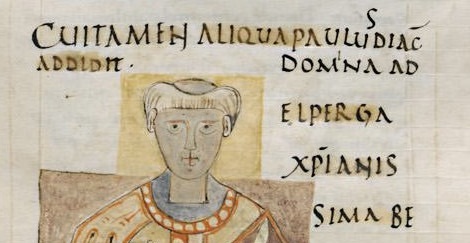 CUITAMEN ALIQUA PAULUS DIAC̄
ADDIDIT. DOMNA AD
ELPERGA
XP̄IANIS
SIMA BE